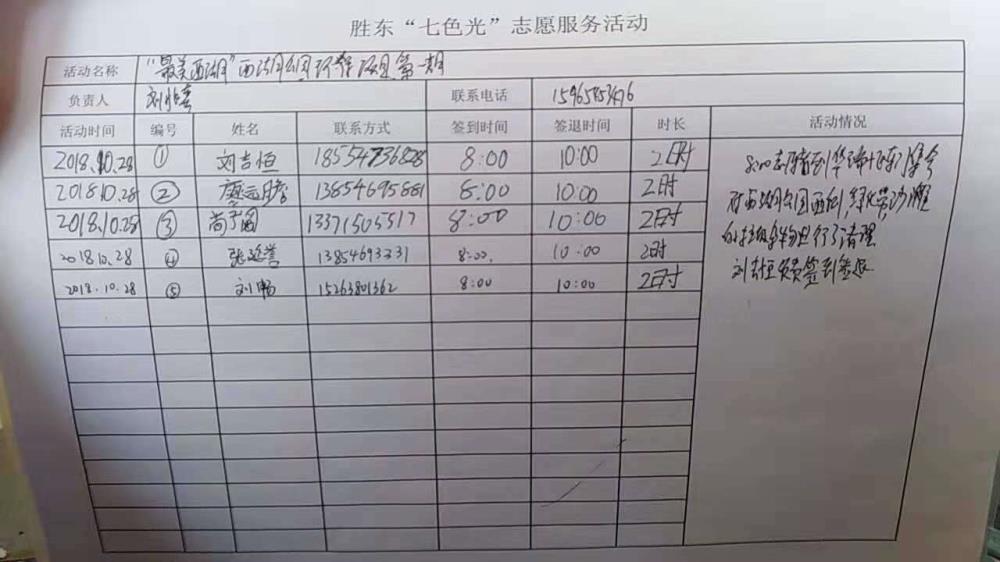 胜东“七色光”志愿服务活动
活动名称 “最美西湖”西湖公园环保项目第一期
负责人 联系电话 15965853476
活动时间 编号 姓名 联系方式 签到时间 签退时间 时长 活动情况
2018.10.28 ① 刘吉恒 18554736828 8:00 10:00 2时
2018.10.28 ② 13854695881 8:00 10:00 2时
2018.10.28 ③ 13371505517 8:00 10:00 2时
2018.10.28 ④ 张延誉 13854693331 8:00 10:00 2时
2018.10.28 ⑤ 刘畅 15263801362 8:00 10:00 2时
8:00志愿者到 集合
对西湖公园西侧,绿化带,沙滩
的垃圾杂物进行了清理
刘吉恒负责签到签退